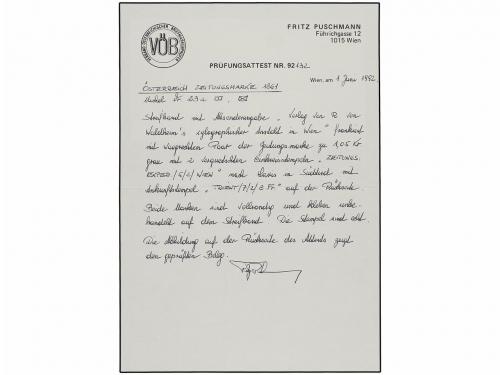 VÖB
FRITZ PUSCHMANN
Führichgasse 12
1015 Wien
PRÜFUNGSATTEST NR. 92132
Wien, am 1. Juni 1992
ÖSTERREICH ZEITUNGSMARKE 1861
Michel Nr 23a
Streifband mit Absenderangabe "Verlag von R von
Waldheim's xylographischer Anstalt in Wien" frankiert
mit waagrechten Paar der Zeitungsmarke zu 1,05 Kr
grau mit 2 Einkreisstempeln "ZEITUNGS
EXPED./5/2/WIEN" nach in Südtirol mit
Ankunftstempel "TRIENT/7/2/ " auf der Rückseite.
Beide Marken sind vollrandig und kleben unbe-
handelt auf dem Streifband. Die Stempel sind echt.
Die Abbildung auf der Rückseite des Attests zeigt
den geprüften Beleg.